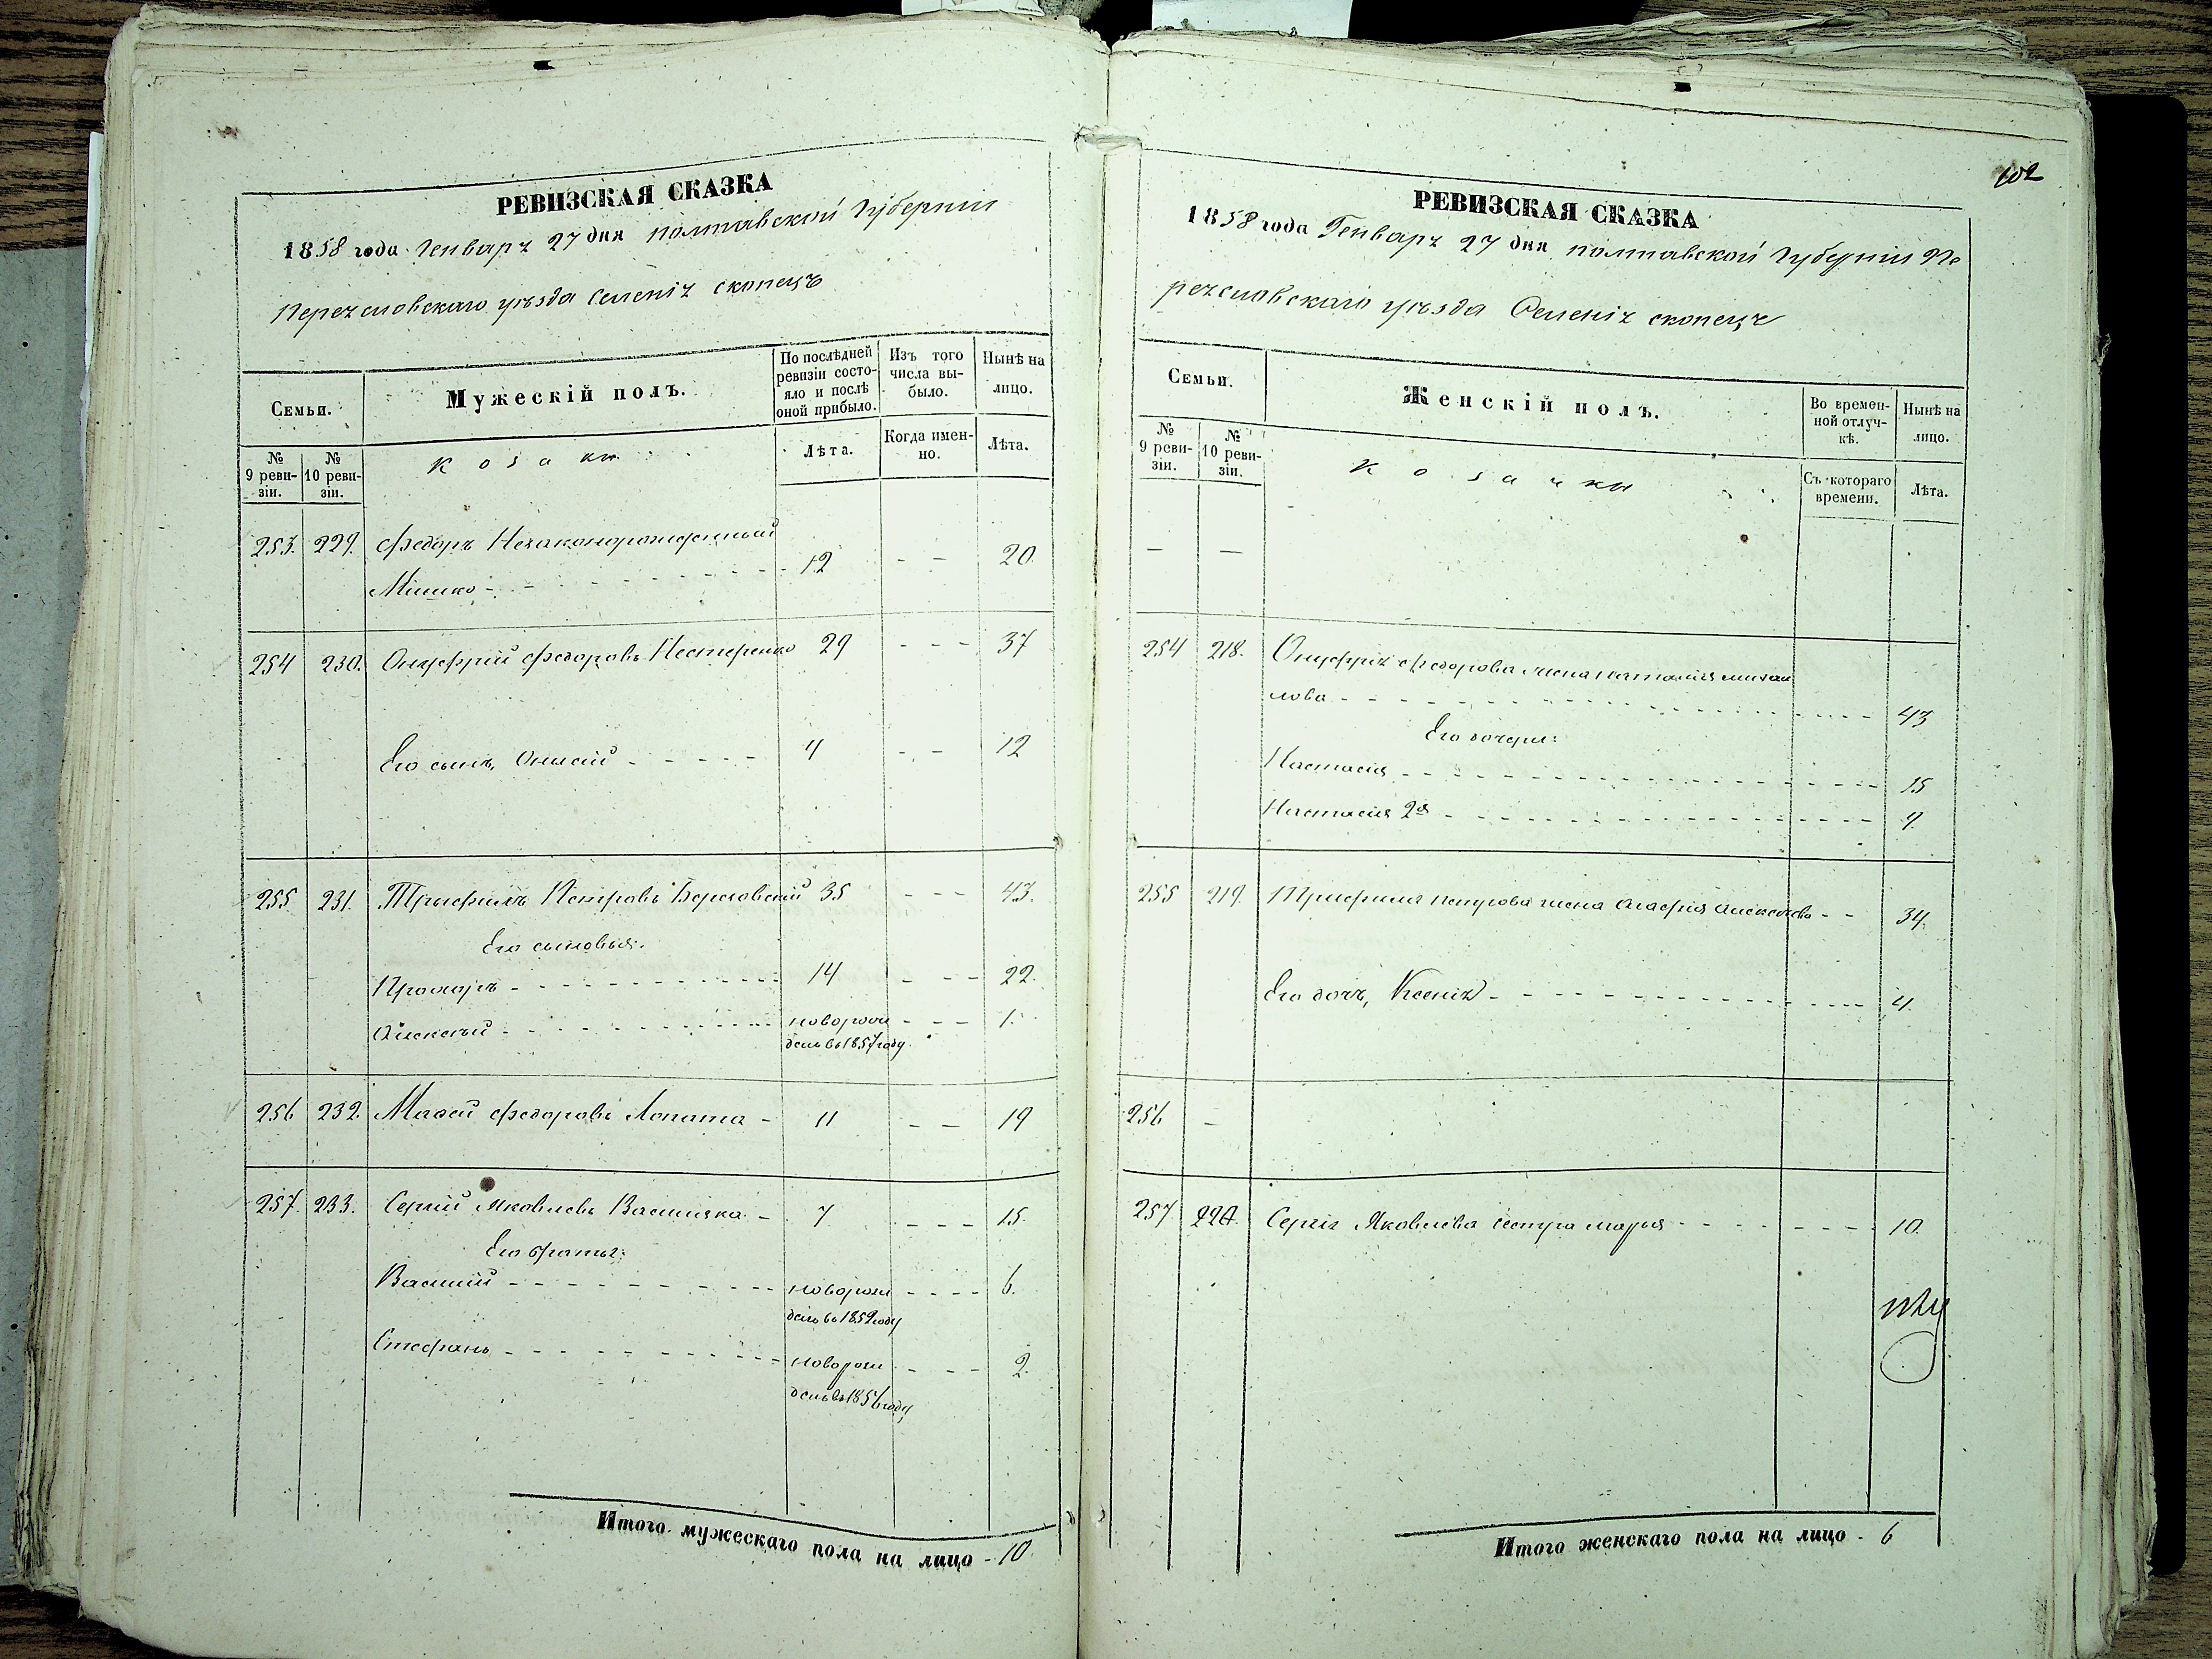 РЕВИЗСКАЯ СКАЗКА
1858 года Генваря 27 дня полтавской Губернии
Переяславскаго уезда Селенія скопецъ
Семьи.
Мужескій полъ.
По послѣдней ревизіи состояло и послѣ оной прибыло.
Изъ того числа выбыло.
Нынѣ на лицо.
№ 9 ревизіи.
№ 10 ревизіи.
Козаки
Лѣта.
Когда именно.
Лѣта.
253. 229. Федоръ Незаконорожденный
Мишко - 12 - - 20.
254 230. Онуфрій Федоровъ Нестеренко 29 - - - 37
Его сынъ, Онисій - 4 - - 12
255 231. Трыфилъ Петровъ Береховскій 35 - - - 43.
Его сыновья:
Прохоръ - 14 - - - 22.
Алексѣй - новорож - - - 1.
денъ въ 1857 году
256 232. Мафей Федоровъ Лопата - 11 - - 19
257. 233. Сергій Яковлевъ Василяка - 7 - - - 15.
Его братья:
Василій - новорож - - - - 6.
денъ въ 1852 году
Стефанъ - новорож - - - 2.
денъ въ 1856 году
Итого мужескаго пола на лицо - 10.
102
РЕВИЗСКАЯ СКАЗКА
1858 года Генваря 27 дня полтавской Губерніи Пе
реяславскаго уезда Селенія скопецъ
Семьи.
Женскій полъ.
Во временной отлучкѣ.
Нынѣ на лицо.
№ 9 ревизіи.
№ 10 ревизіи.
Козачки
Съ котораго времени.
Лѣта.
— —
254 218. Онуфрія Федорова жена Наталія михаи
лова - 43
Его дочери:
Настасія - 15
Настасія 2я - 9.
255 219. Трифила петрова жена Агафія Алексеева - - 34.
Его дочь, Ксенія - 4.
256 -
257 220. Сергія Яковлева сестра марья - 10.
Итого женскаго пола на лицо - 6